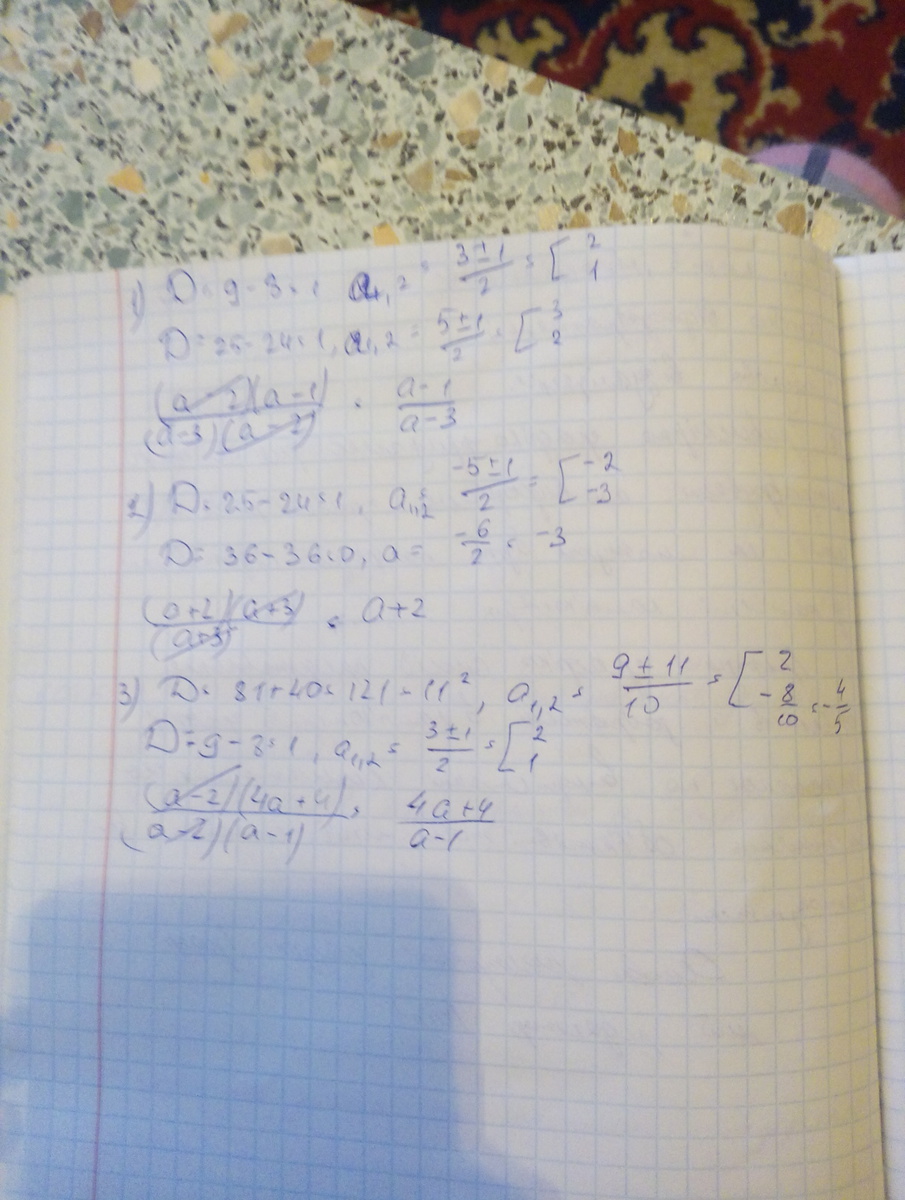 1) D = 9 - 8 = 1 a1,2 = 3±1/2 = [ 2 1
D = 25 - 24 = 1, a1,2 = 5±1/2 = [ 3 2
(a-2)(a-1)/(a-3)(a-2) = a-1/a-3
2) D = 25 - 24 = 1, a1,2 = -5±1/2 = [ -2 -3
D = 36 - 36 = 0, a = -6/2 = -3
(a+2)(a+3)/(a+3) = a+2
3) D = 81 + 40 = 121 = 11², a1,2 = 9±11/10 = [ 2 -8/10 = -4/5
D = 9 - 8 = 1, a1,2 = 3±1/2 = [ 2 1
(a-2)(4a+4)/(a-2)(a-1) = 4a+4/a-1